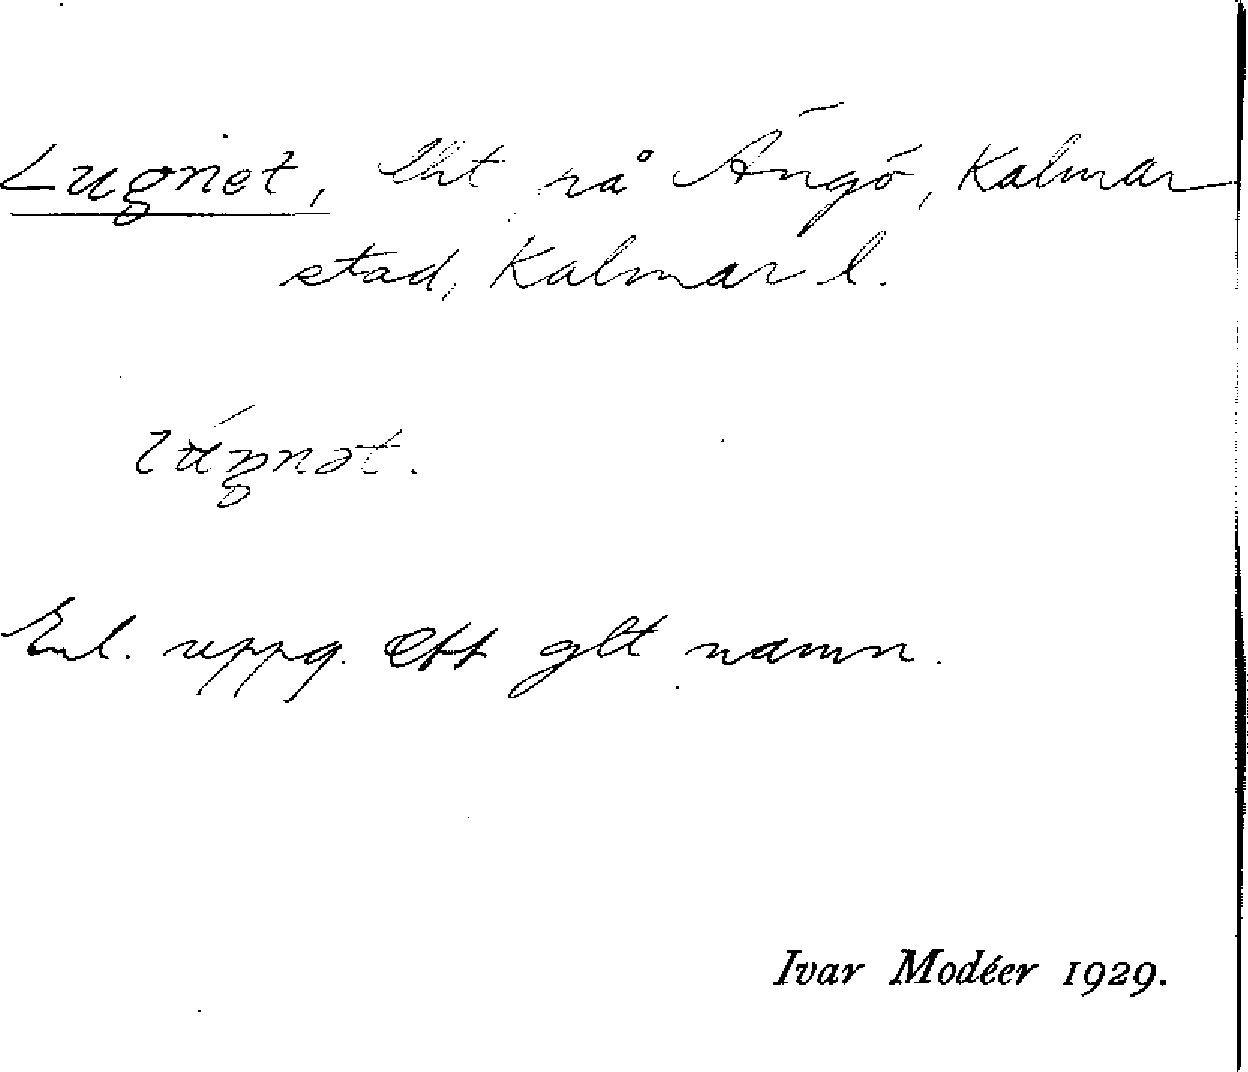 Lugnet, lht på Ängö, Kalmar
stad, Kalmar l.
Enl. uppg. ett glt namn.
Ivar Modéer 1929.